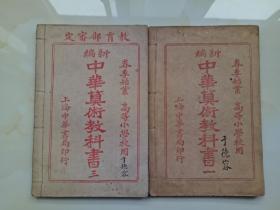 定審部育教
新編
春季始業　高等小學校用
中華算術教科書 三
于德容
上海中華書局印行
新編
春季始業　高等小學校用
中華算術教科書 一
于德容
上海中華書局印行